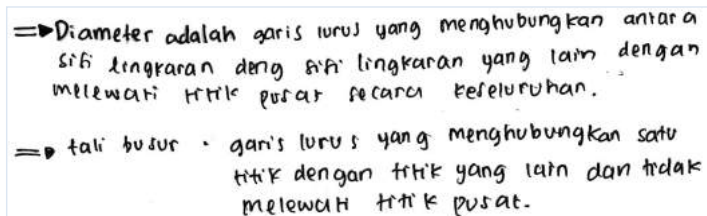 ⇒ Diameter adalah garis lurus yang menghubungkan antara
sisi lingkaran deng sisi lingkaran yang lain dengan
melewati titik pusat secara keseluruhan.
⇒ tali busur . garis lurus yang menghubungkan satu
titik dengan titik yang lain dan tidak
melewati titik pusat.